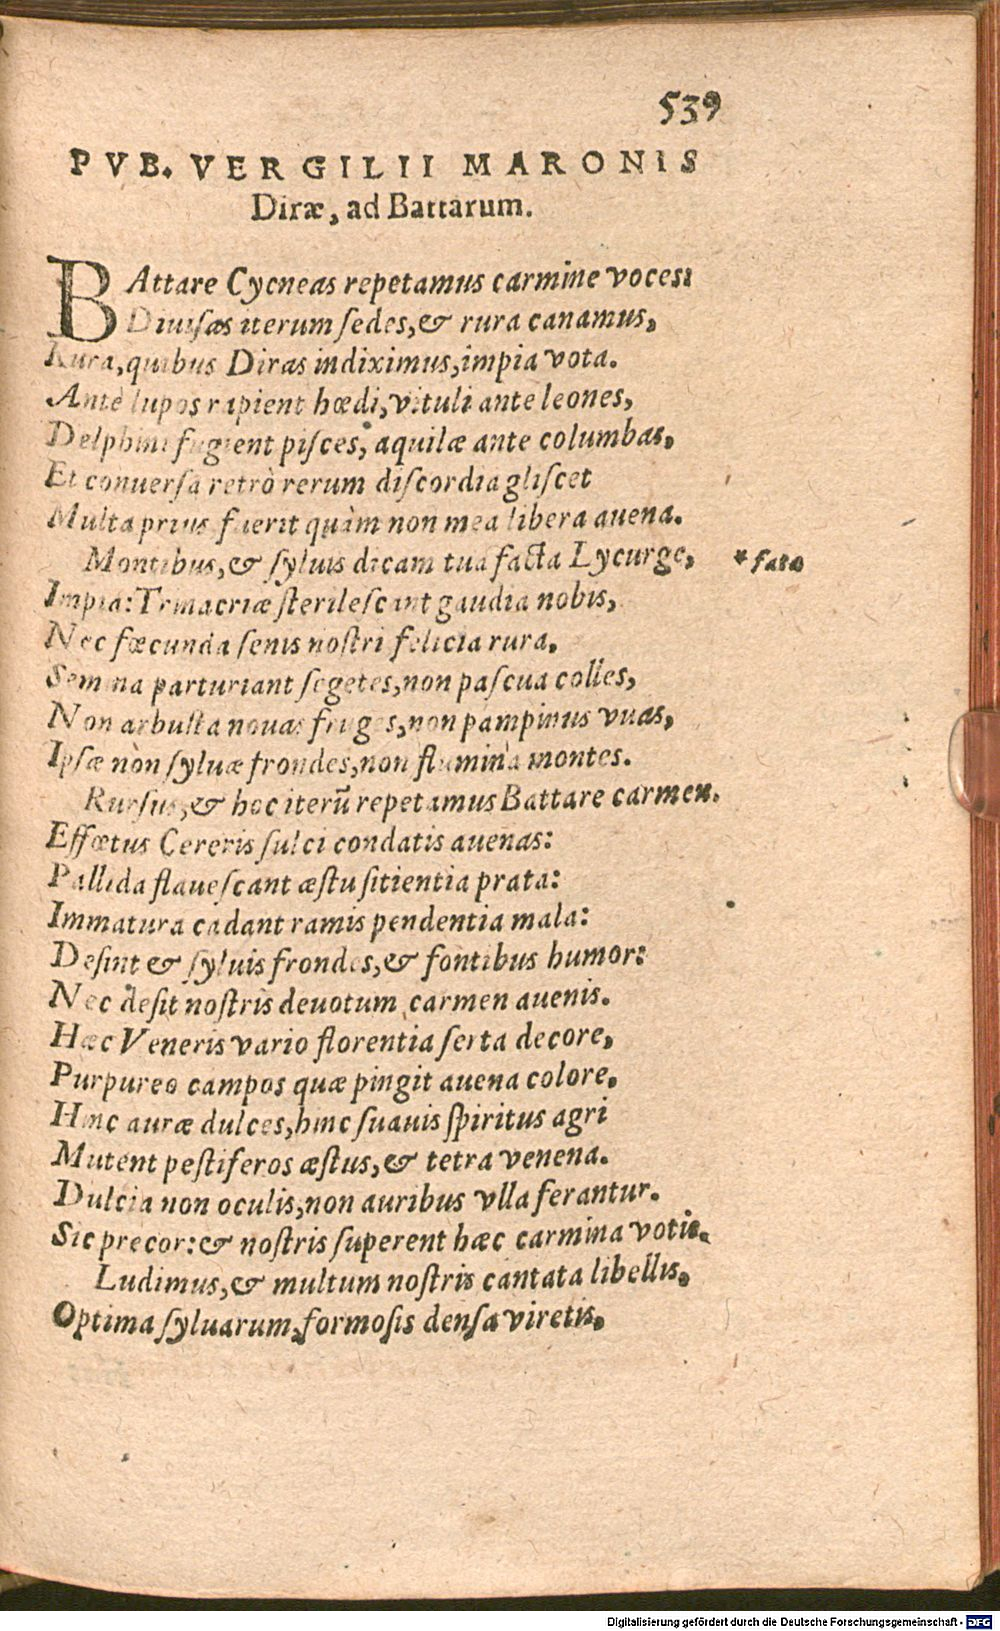 539
PVB. VERGILII MARONIS
Diræ, ad Battarum.
BAttare Cycneas repetamus carmine voces:
Diuisas iterum sedes, & rura canamus,
Rura, quibus Diras indiximus, impia vota.
Antè lupos rapient hœdi, vituli ante leones,
Delphini fugient pisces, aquilæ ante columbas,
Et conuersa retrò rerum discordia gliscet
Multa prius fuerit quàm non mea libera auena.
Montibus, & syluis dicam tua facta Lycurge, * fata
Impia: Trinacriæ sterilescant gaudia nobis,
Nec fœcunda senis nostri felicia rura.
Semina parturiant segetes, non pascua colles,
Non arbusta nouas fruges, non pampinus vuas,
Ipsæ non syluæ frondes, non flumina montes.
Rursus, & hoc iterū repetamus Battare carmen.
Effœtus Cereris sulci condatis auenas:
Pallida flauescant æstu sitientia prata:
Immatura cadant ramis pendentia mala:
Desint & syluis frondes, & fontibus humor:
Nec desit nostris deuotum carmen auenis.
Hæc Veneris vario florentia serta decore,
Purpureo campos quæ pingit auena colore,
Hinc auræ dulces, hinc suauis spiritus agri
Mutent pestiferos æstus, & tetra venena.
Dulcia non oculis, non auribus vlla ferantur.
Sic precor: & nostris superent hæc carmina votis.
Ludimus, & multum nostris cantata libellis,
Optima syluarum, formosis densa viretis,
Digitalisierung gefördert durch die Deutsche Forschungsgemeinschaft - DFG